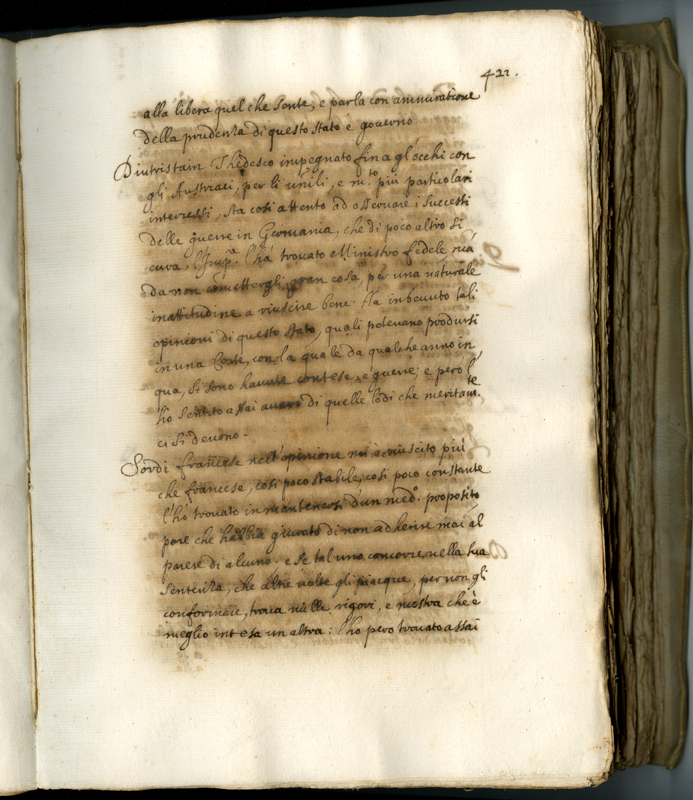 422.
alla libera quel che sente, e parla con ammiratione
della prudenza di questo stato e governo.
Diatristain Thedesco impegnato fin a gl'occhi con
gli Austriaci, per li utili, e m.to più particolari
interessi, sta così attento ad osservare i successi
delle guerre in Germania, che di poco altro si
cura, l'Imp.e l'hà trovato Ministro fedele, mà
da non commettergli gran cosa, per una naturale
inattitudine a riuscire bene. Ha inbevuto tali
opinioni di questo stato, quali potevano prodursi
in una Corte, con la quale da qualche anno in
quà, si sono havute contese, e guerre; e però l'
hò sentito assai avaro di quelle lodi che meritam.te
ci si devono.
Sordi francese nell'opinione mi è riuscito più
che francese, così poco stabile, così poco constante
l'hò trovato in mantenersi d'un med.o proposito
pare che habbia giurato di non adherire mai al
parere di alcuno. e se tal uno concorre nella sua
sentenza, che altre volte gli piacque, per non gli
conformarsi, trova mille rigori, e mostra che è
meglio intesa un altra: l'hò pero trovato assai